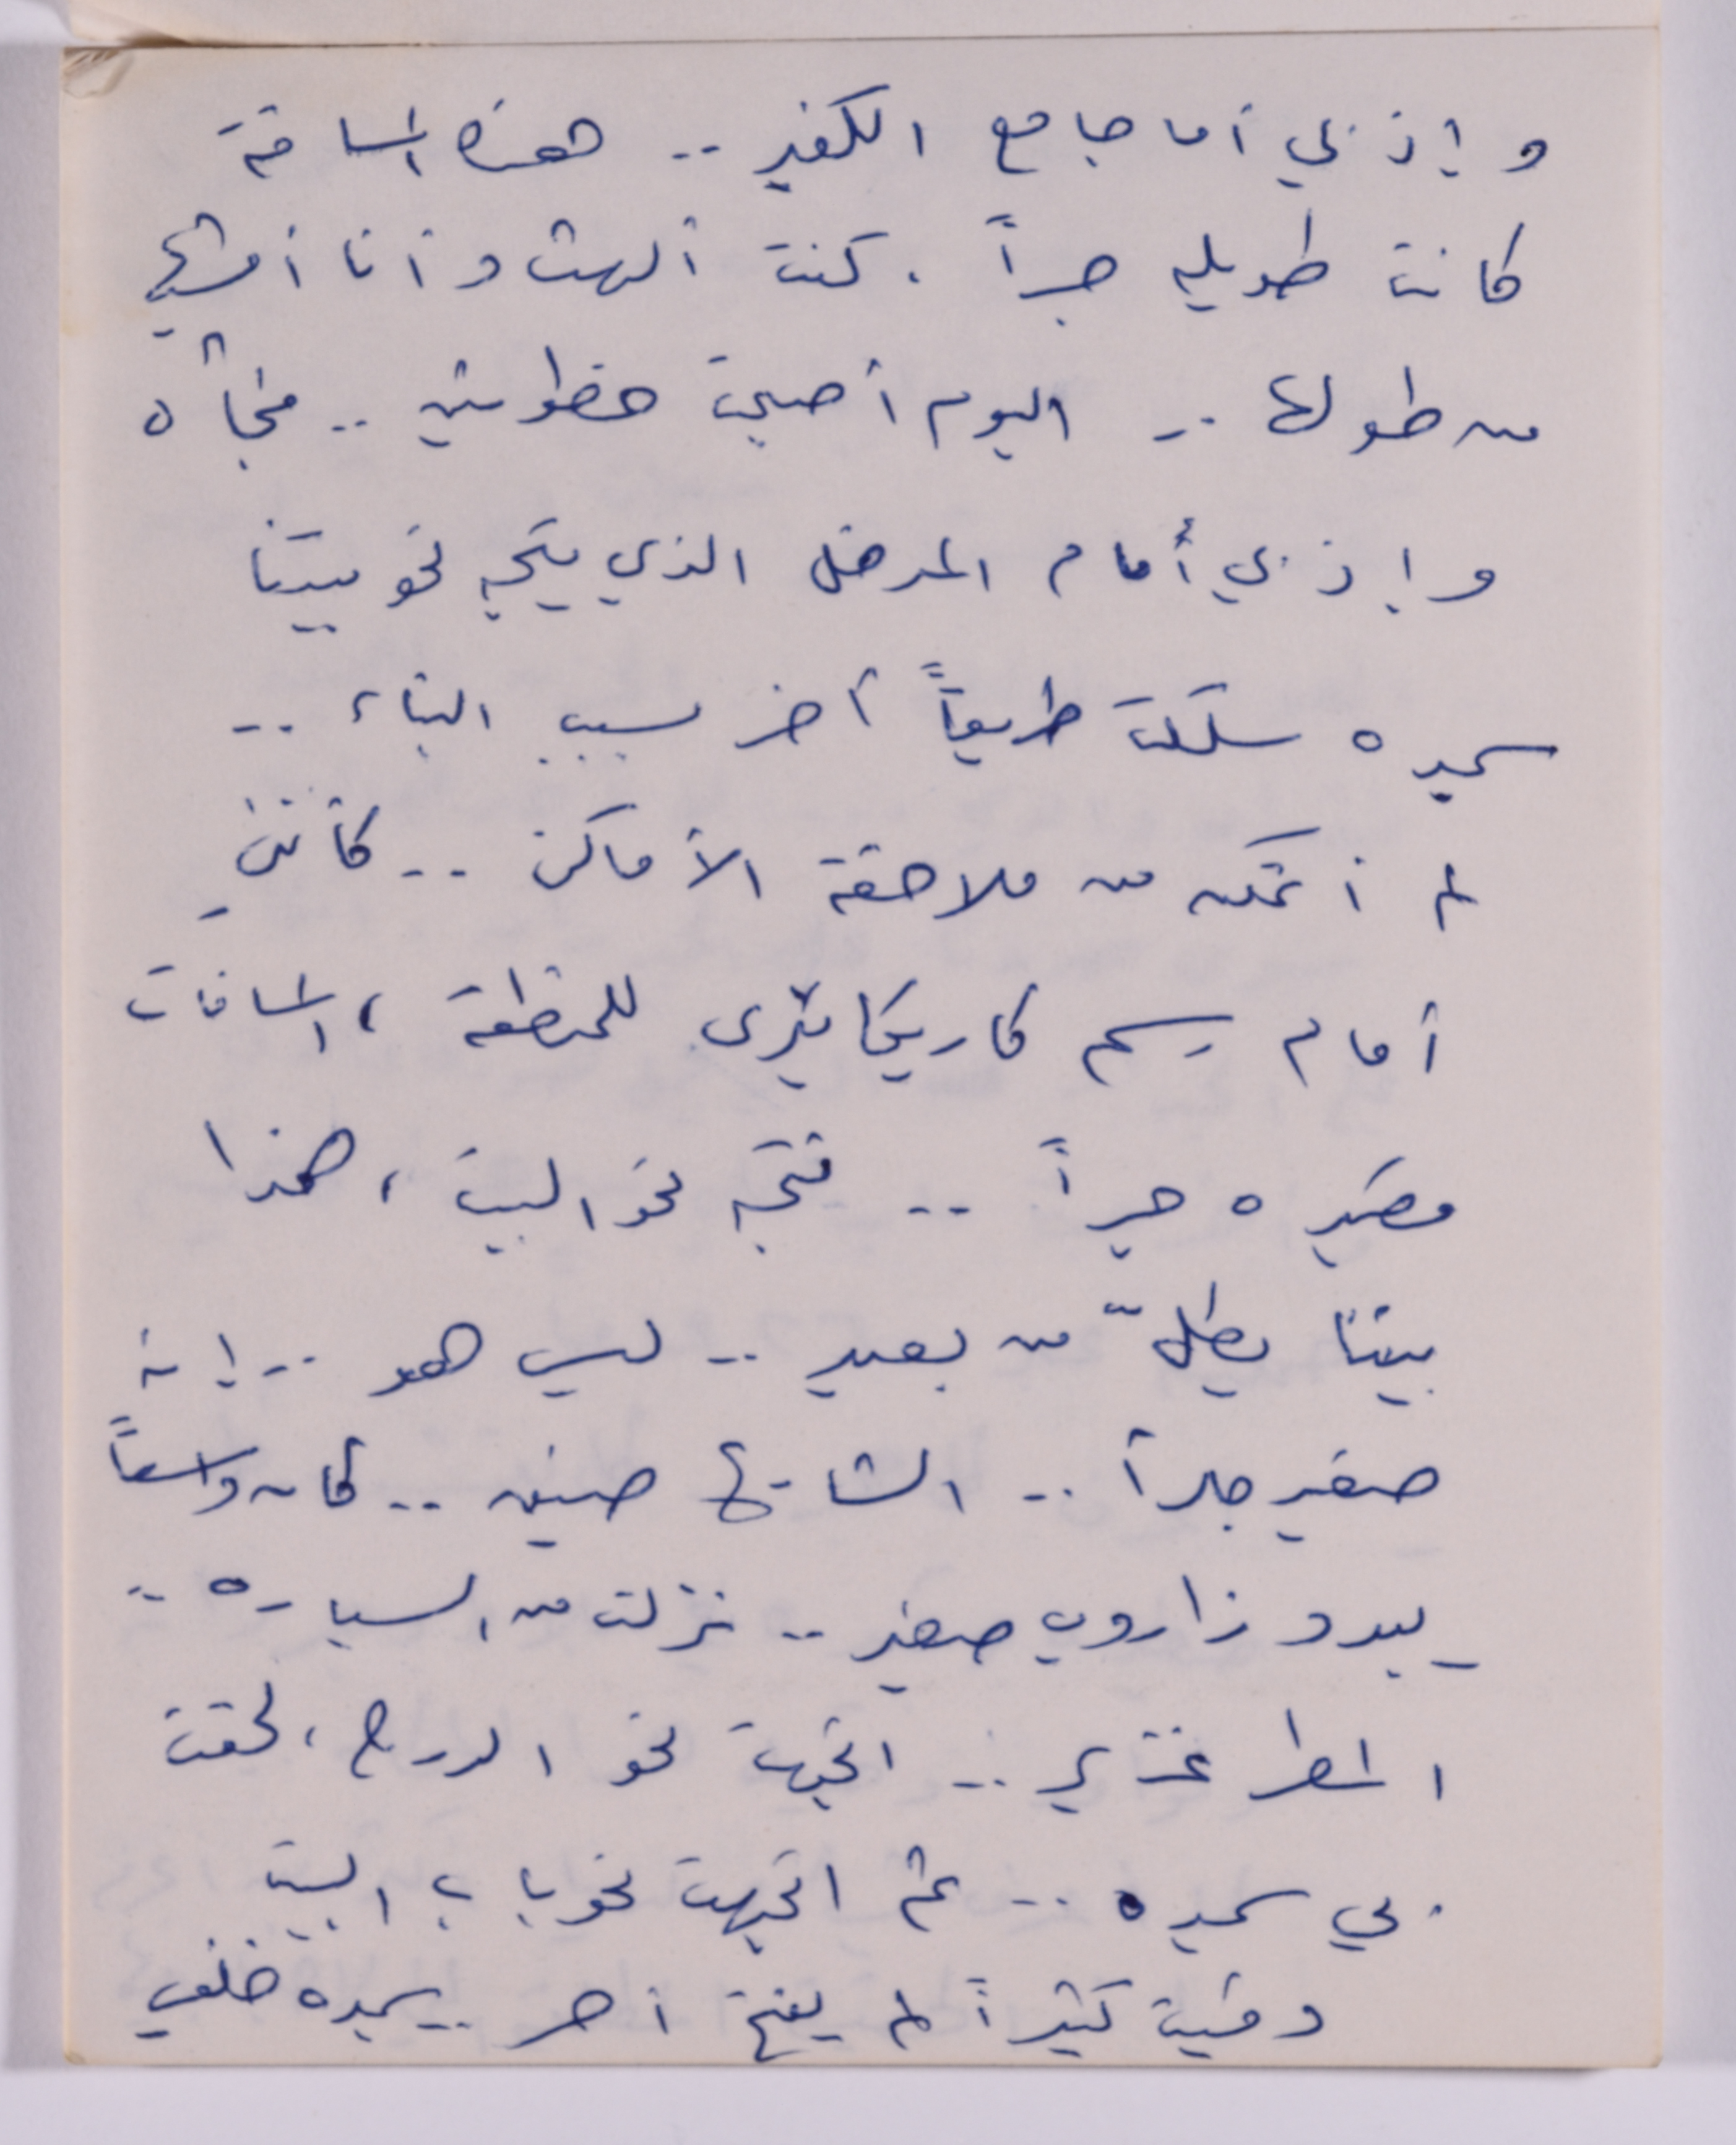 وإذ بي أما جامع الكفير .. هذه المسافة
كانت طويله جداً . كنت ألهث وأنا أمشيها
من طولها .. اليوم أصبحت خطوتين .. فجأه
وإذ بي أمام المدخل الذي يتجه نحو بيتنا
سميره سلكت طريقاً آخر بسبب البناء ..
لم أتمكن من ملاحقة الأماكن .. كأنني
أمام رسم كاريكاتيري للمنطقة ، المسافات
قصيره جداً .. نتجه نحو البيت ، هذا
بيتنا يطلّ من بعيد .. ليس هو .. إنه
صغير جداً .. الشارع ضيق .. كان واسعاً
يبدو زاروب صغير .. نزلت من السياره ..
المطر غزير .. اتجهت نحو الدرج ، لحقت
بي سميره .. ثم اتجهت نحو باب البيت
دقيت كثيراً لم يفتح أحد .. سميره خلفي